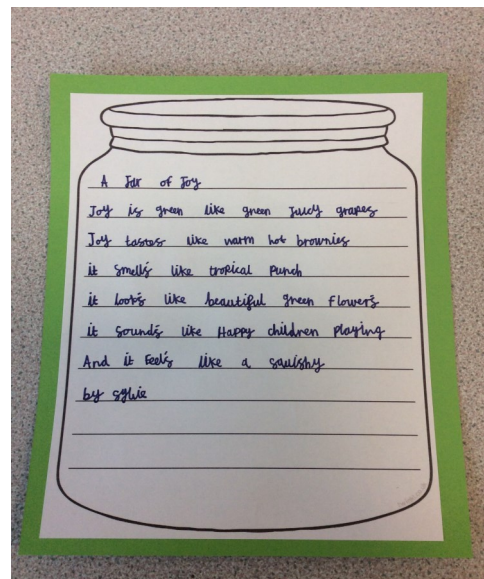 A Jar of Joy
Joy is green like green Juicy grapes
Joy tastes like warm hot brownies
it smells like tropical Punch
it looks like beautiful green Flowers
it sounds like Happy children Playing
And it Feels like a squishy
by sylvie